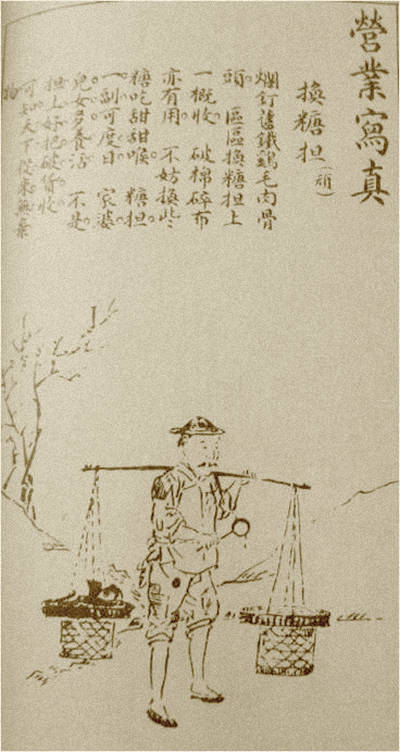 營業寫真
換糖担（頑）
爛釘舊鐵鷄毛肉骨
頭。區區換糖担上
一概收。破棉碎布
亦有用。不妨換些
糖吃甜甜喉。糖担
一副可度日。家婆
兒女多養活。不是
担上好把破貨收。
可知天下從來無棄
物